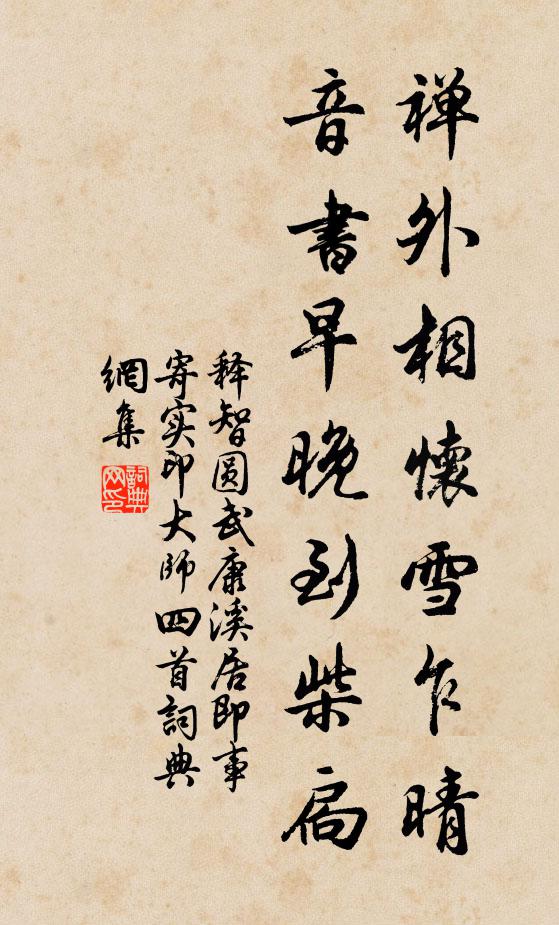 禅外相懷雪乍晴
音書早晚到柴扃
释智圆武康溪居即事
寄实印大师四首詞典
網集
詞典
网印